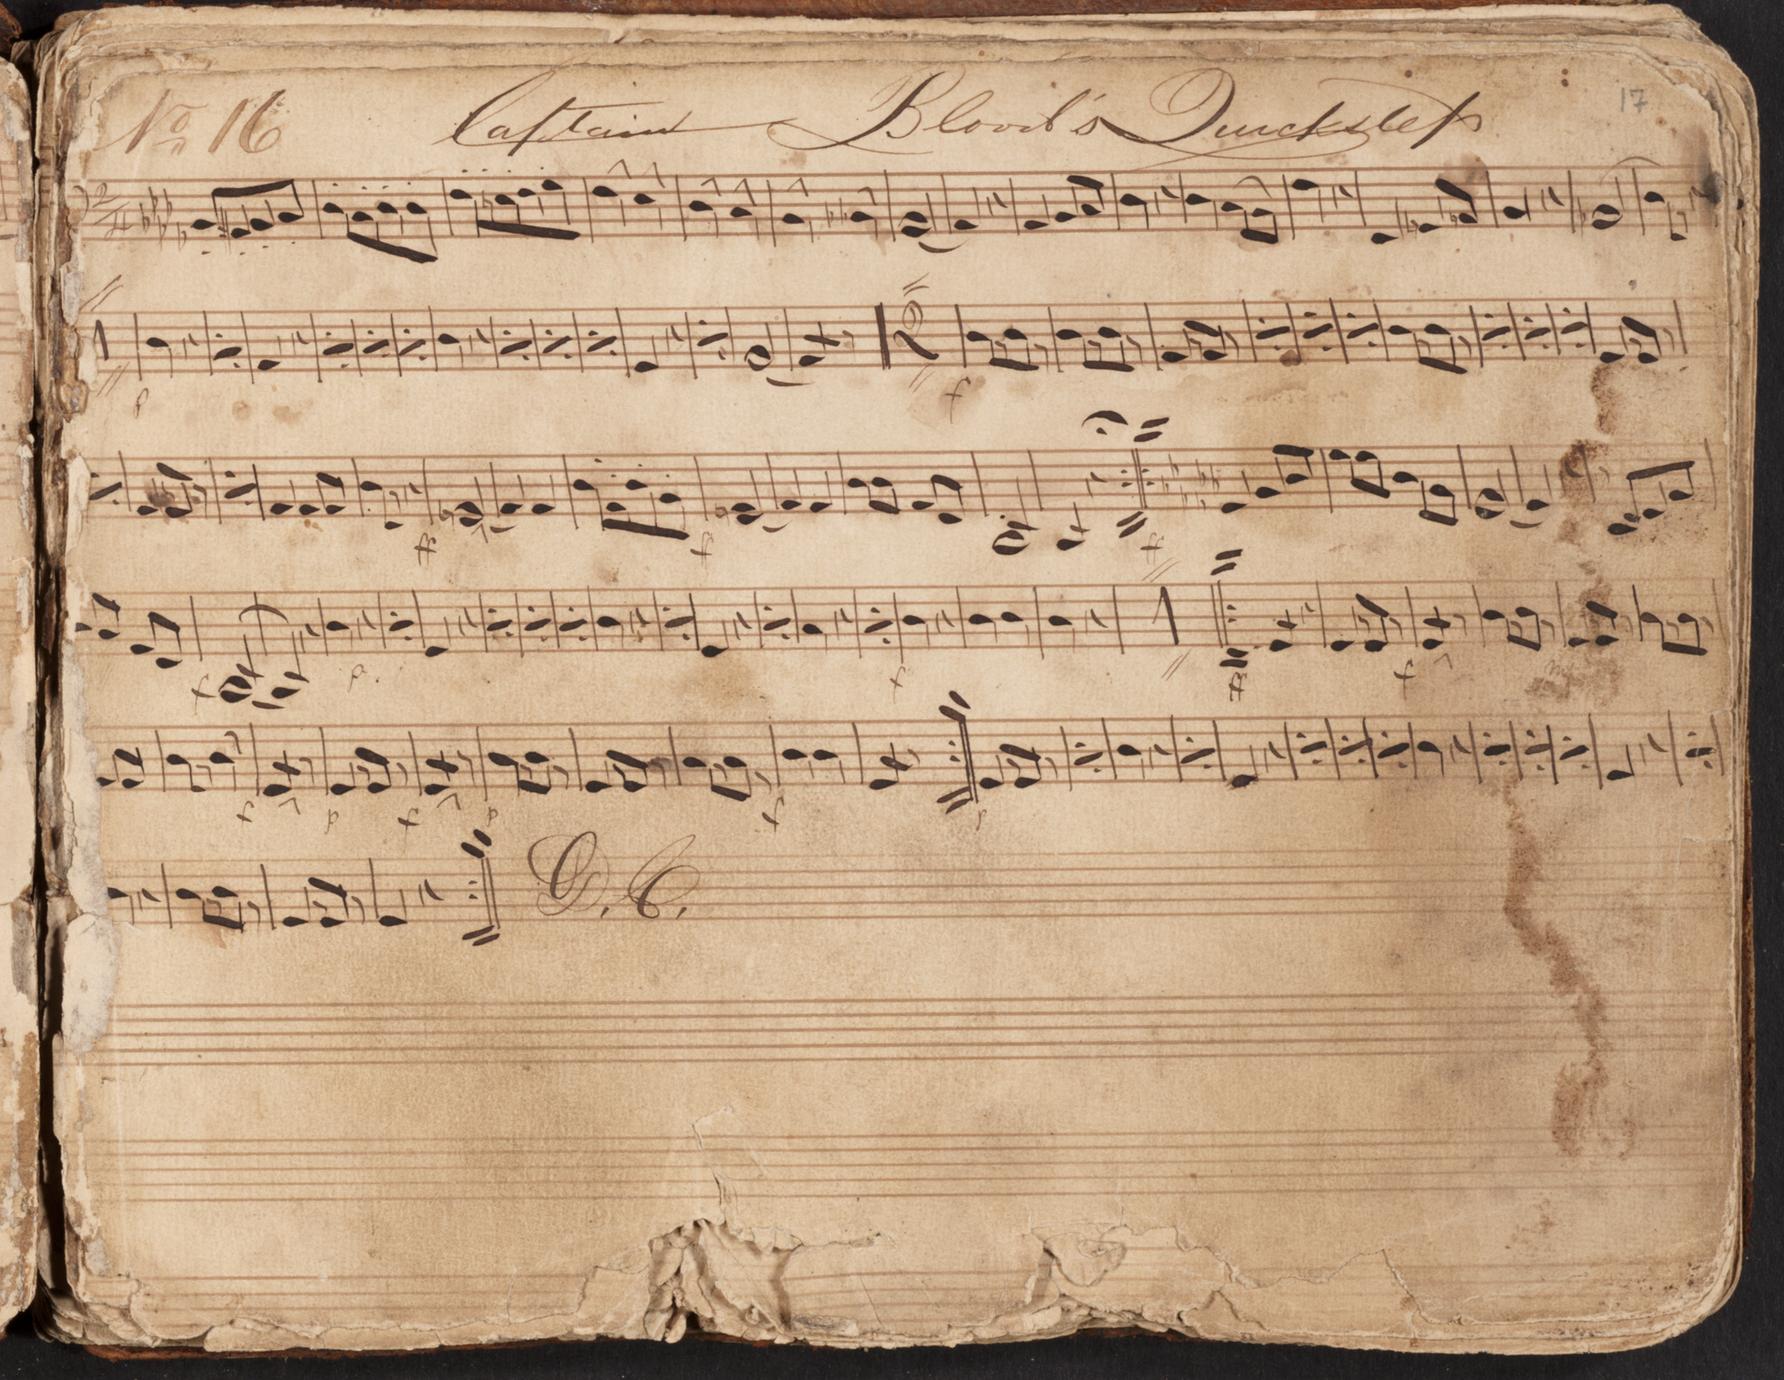 No 16 Captain Blood's Quickstep 17
2/4
1 p 2 f
ff f ff
f p. f 1 ff f mf
f p f p f p
D. C.